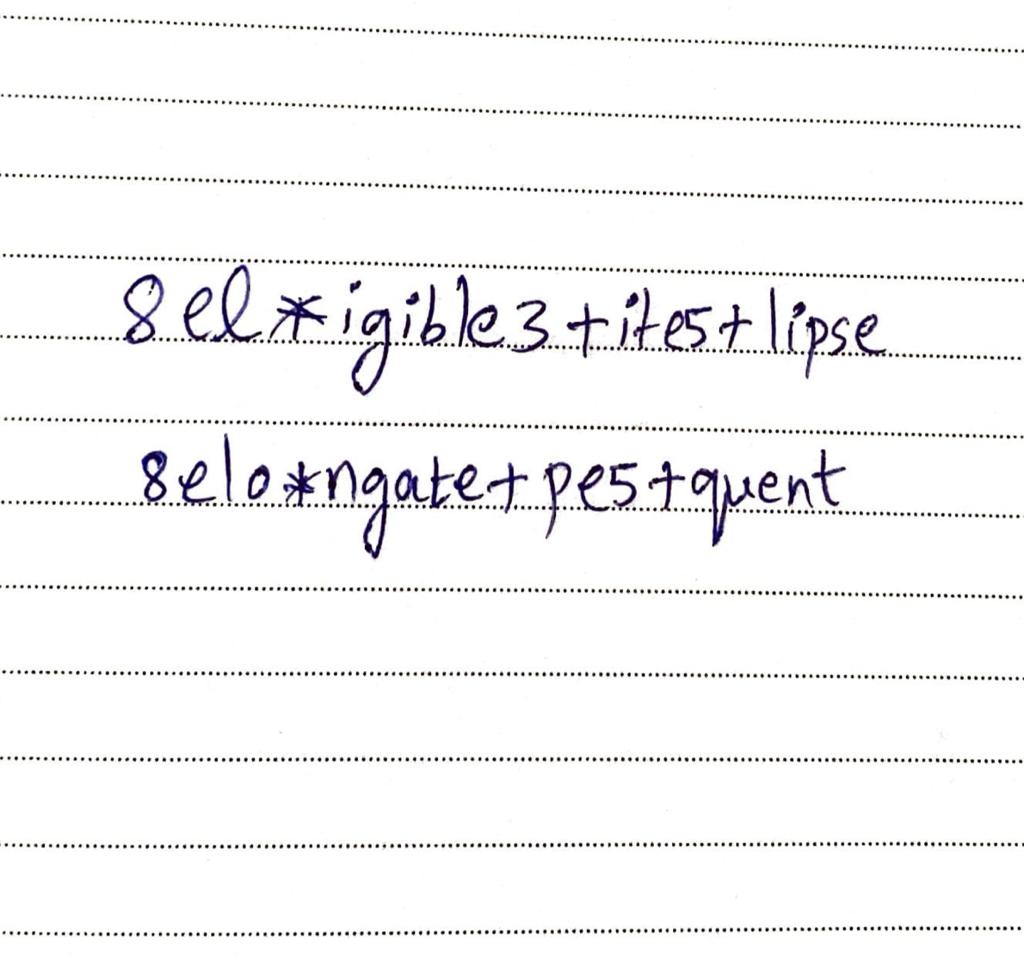 8el*igible3+ite5+lipse
8elo*ngate+pe5+quent